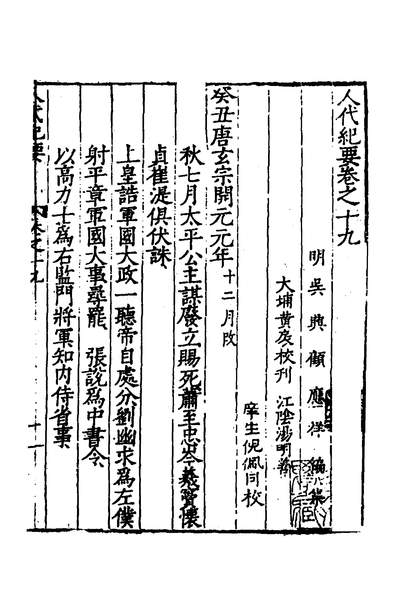 人代紀要卷之十九
明吳興顧應祥編集
大埔黃扆校刊 江陰湯明善
庠生倪佩同校
癸丑唐玄宗開元元年十二月改
秋七月太平公主謀廢立賜死蕭至忠岑羲竇懷
貞崔湜俱伏誅
上皇誥軍國大政一聽帝自處分劉幽求爲左僕
射平章軍國大事尋罷 張說爲中書令
以高力士爲右監門將軍知内侍省事
人代紀要 卷之十九